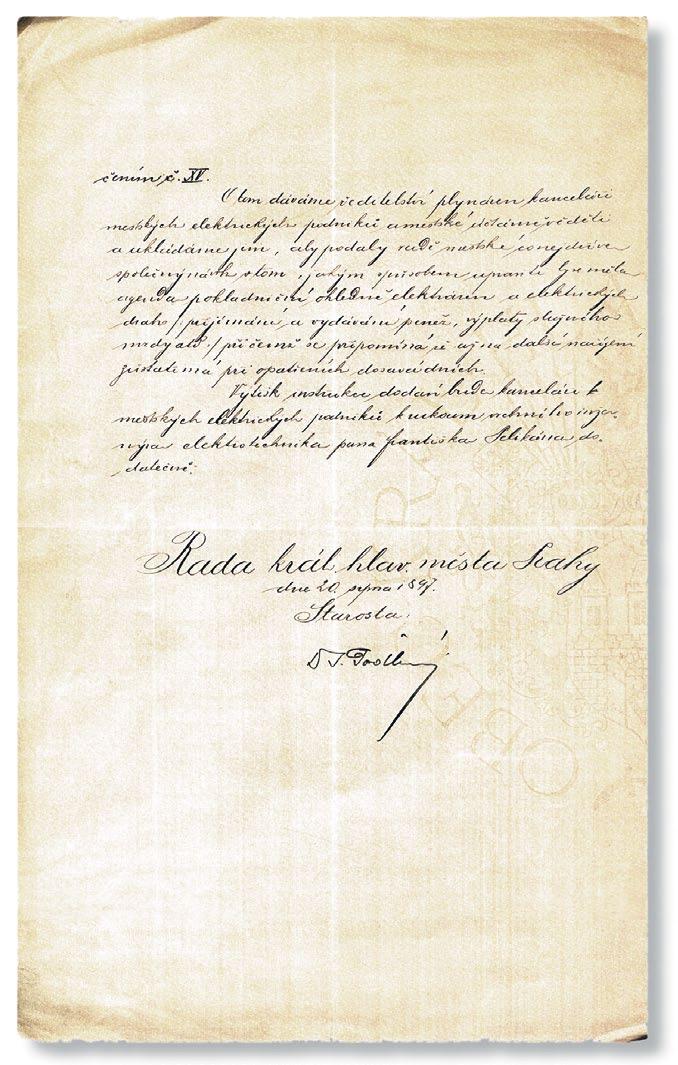 čením č. XV.
O tom dáváme ředitelství plynáren kanceláři
městských elektrických podniků a městské účtárně věděti
a ukládáme jim, aby podaly radě městské co nejdříve
společný návrh o tom, jakým způsobem upraniti by se měla
agenda pokladniční ohledně elektráren a elektrických
drah / přijímání a vydávání peněz, výplaty služného
mzdy atd. / při čemž se připomíná, že až na další nařízení
zůstati má při opatřeních dosavadních.
Výtisk instrukce dodán bude kanceláři
městských elektrických podniků k rukoum vrchního inže-
nýra elektrotechnika pana Františka Pelikána do-
datečně.
Rada král. hlav. města Prahy
dne 20. srpna 1897.
Starosta:
Dr J. Podlipný
OBEC PRA